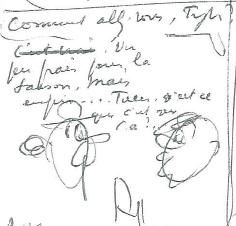 Comment allez-vous,
c'est vrai. Un
peu frais pour la
saison, mais
enfin... Tiens, qu'est ce
que c'est que
ça ?...